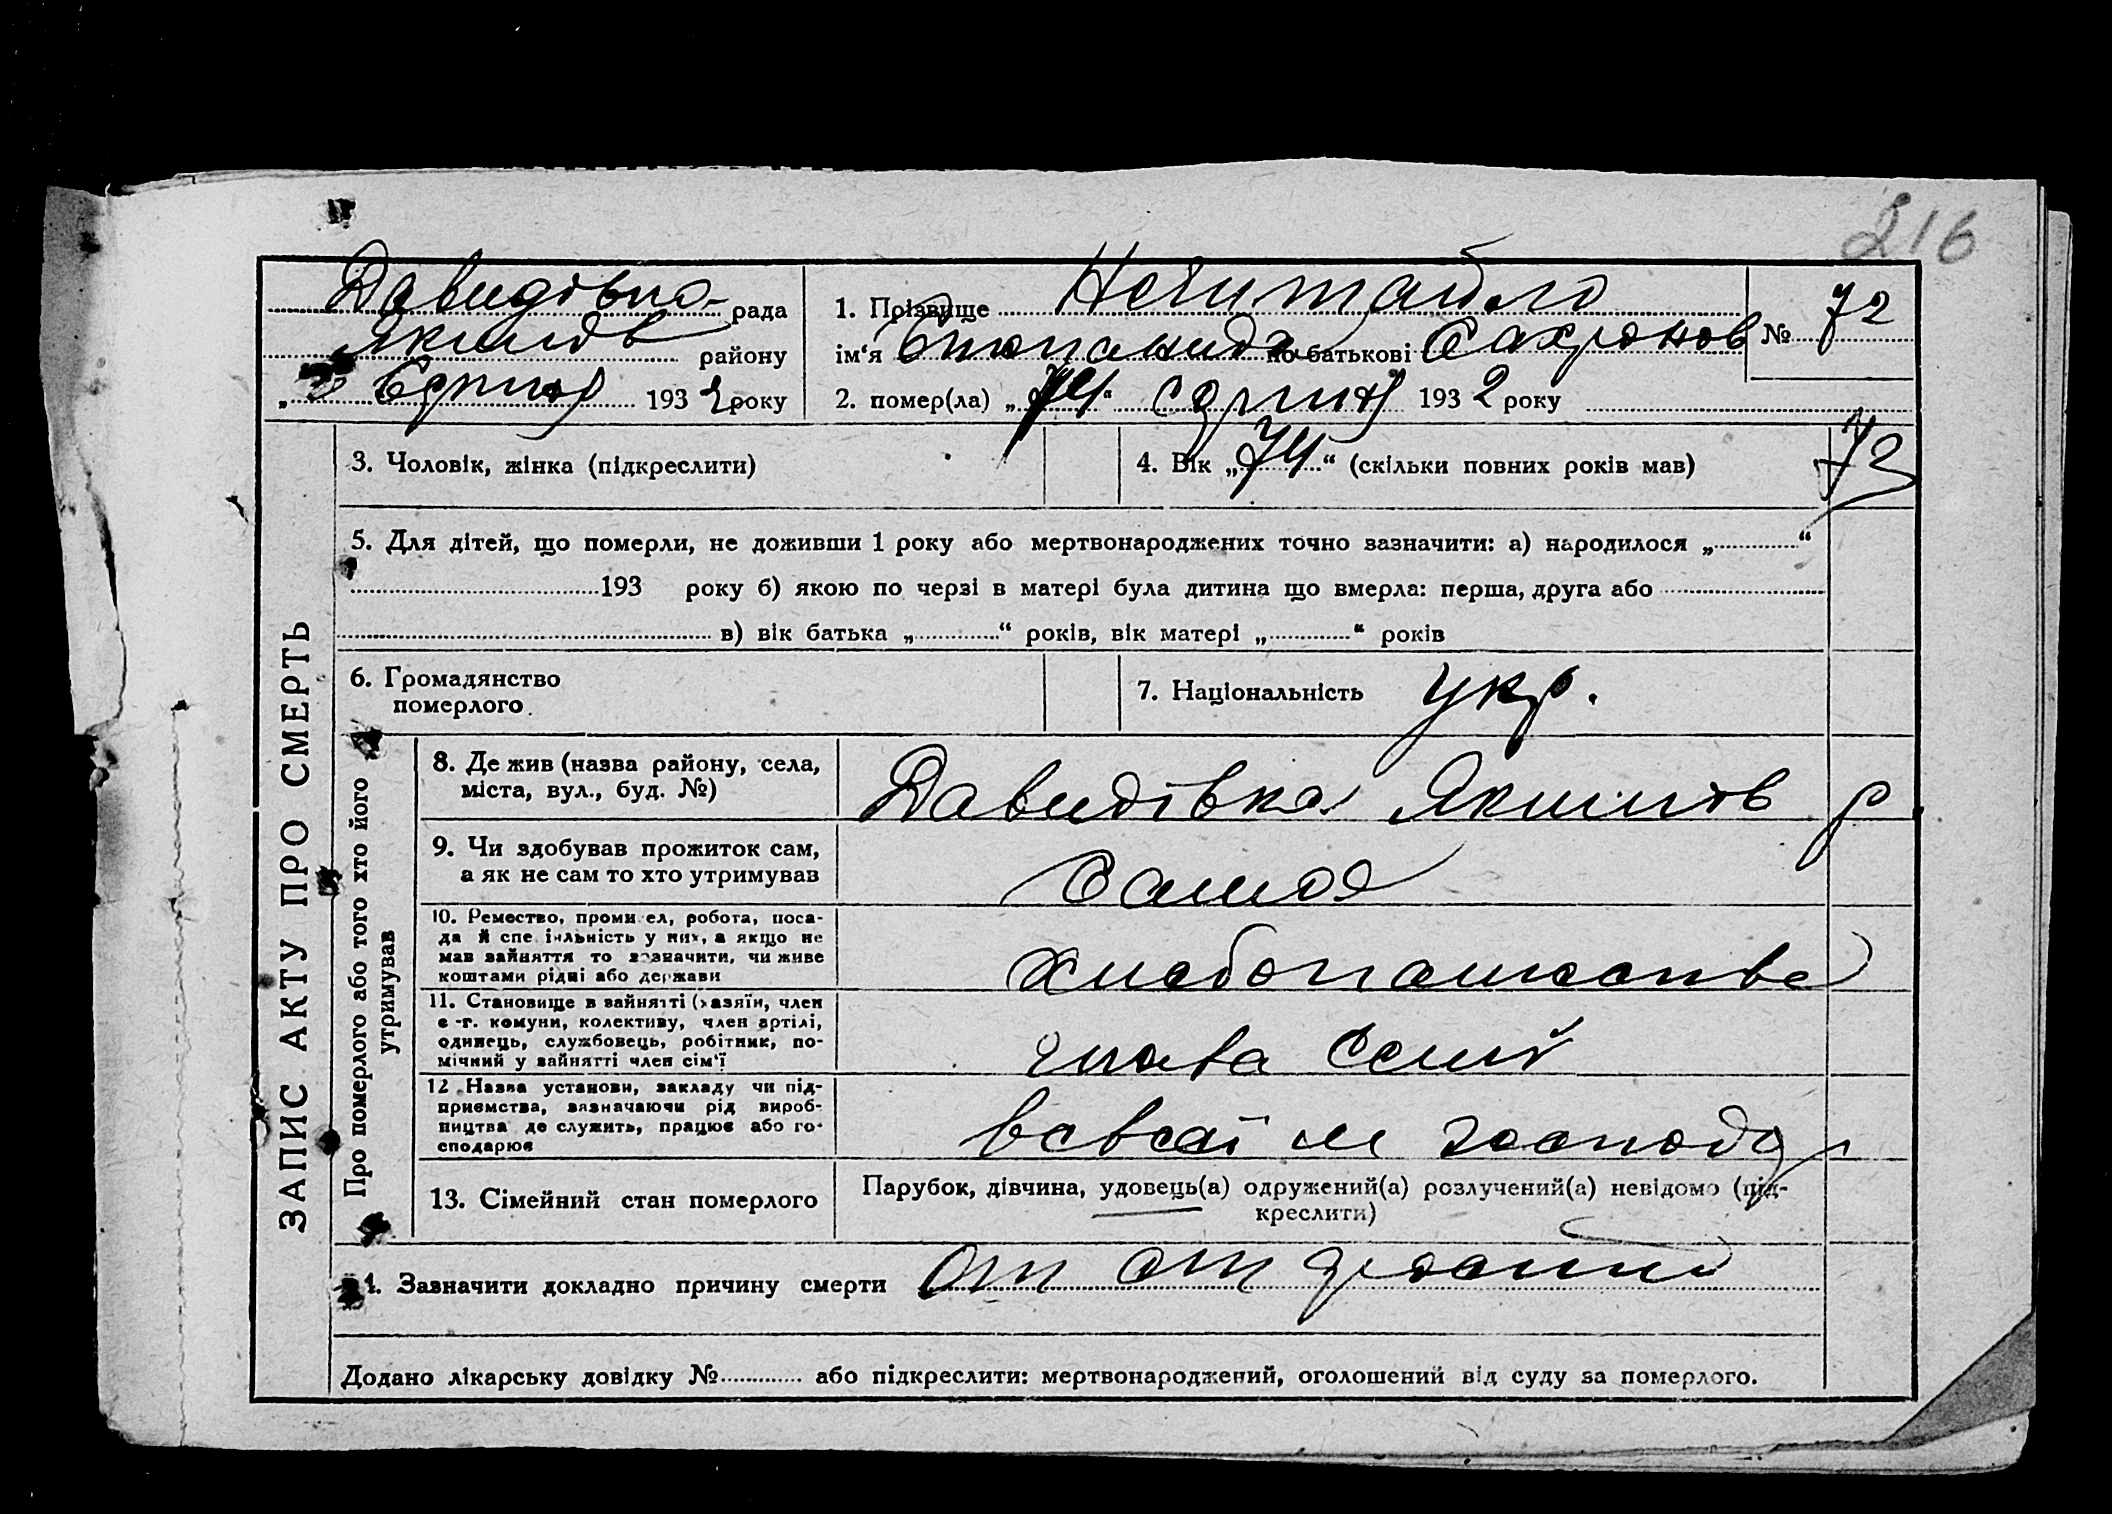 216
Давидівка рада
Якимов району
„ Серпня 1932 року
1. Прізвище
№ 72
ім‘я Степанида по батькові Сахронов
2. помер(ла) „ “ серпня 1932 року
72
3. Чоловік, жінка (підкреслити)
4. Вік „74“ (скільки повних років мав)
5. Для дітей, що померли, не доживши 1 року або мертвонароджених точно зазначити: а) народилося „ “
193 року б) якою по черзі в матері була дитина що вмерла: перша, друга або
в) вік батька „ “ років, вік матері „ “ років
6. Громадянство
померлого
7. Національність укр.
ЗАПИС АКТУ ПРО СМЕРТЬ
Про померлого або того хто його
утримував
8. Де жив (назва району, села,
міста, вул., буд. №)
Давидівка Якимов р.
9. Чи здобував прожиток сам,
а як не сам то хто утримував
Сама
10. Ремество, промисел, робота, поса-
да й спеціяльність у них, а якщо не
мав зайняття то зазначити, чи живе
коштами рідні або держави
хлебопашество
11. Становище в зайнятті (хазяїн, член
с.-г. комуни, колективу, член артілі,
одинець, службовець, робітник, по-
мічний у зайнятті член сім‘ї
глава семї
12. Назва установи, закладу чи під-
приємства, зазначаючи рід вироб-
ництва де служить, працює або го-
сподарює
в своєї м господар
13. Сімейний стан померлого
Парубок, дівчина, удовець(а) одружений(а) розлучений(а) невідомо (під-
креслити)
14. Зазначити докладно причину смерти от
Додано лікарську довідку № або підкреслити: мертвонароджений, оголошений від суду за померлого.